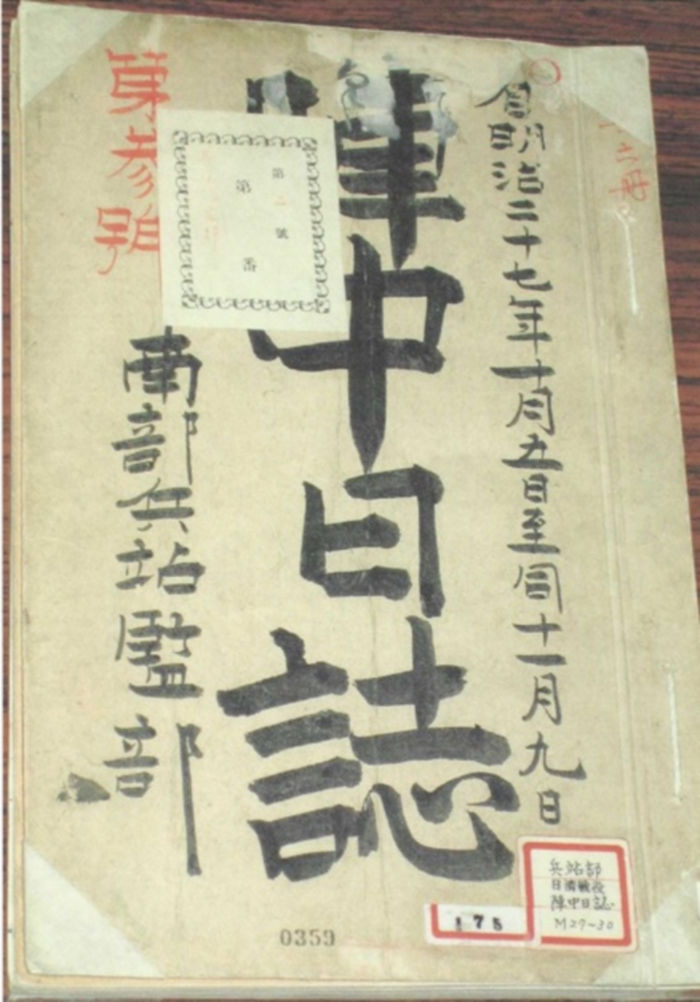 自明治二十七年十月五日至同十一月九日
陣中日誌
第参号
南部兵站監部
第二號
第 番
兵站部
日清戦役
陣中日誌
M27~30
175
0359